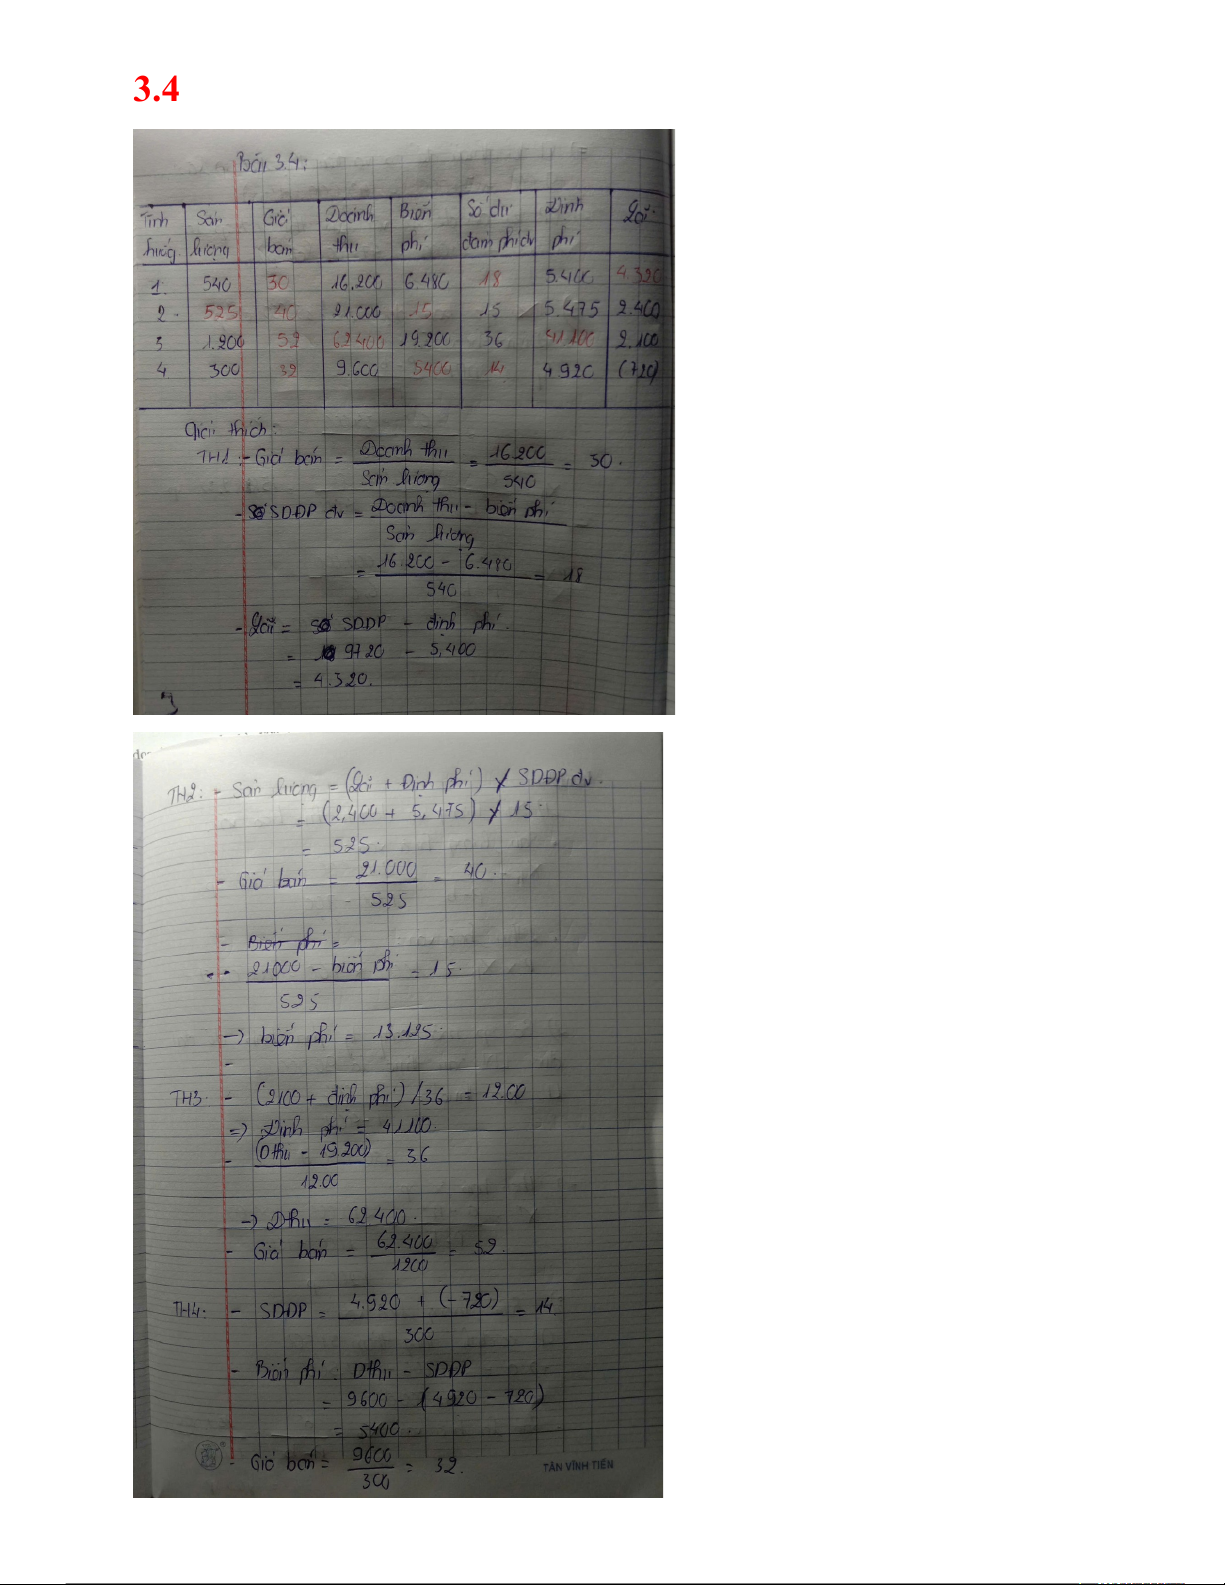 3.4
Bài 3.4:
Tình Sản Giá Doanh Biến Số dư Định Lãi
huống lượng bán thu phí đảm phí đv phí
1. 540 30 16.200 6.480 18 5.400 4.320
2. 525 40 21.000 15 15 5.475 2.400
3 1.200 52 62400 19.200 36 41.100 2.100
4. 300 32 9.600 5400 14 4.920 (720)
Giải thích:
TH1: - Giá bán = Doanh thu / Sản lượng = 16.200 / 540 = 30.
- SDĐP đv = Doanh thu - biến phí / Sản lượng
= 16.200 - 6.480 / 540 = 18
- Lãi = SDĐP - định phí.
= 9720 - 5,400
= 4.320.
TH2: - Sản lượng = (Lãi + Định phí) / SDĐP đv.
= (2,400 + 5,475) / 15
= 525.
- Giá bán = 21.000 / 525 = 40.
- Biến phí =
- 21000 - biến phí / 525 = 15.
-> biến phí = 13.125.
-
TH3: - (2100 + định phí) / 36 = 1200
=> Định phí = 41100.
- (Dthu - 19.200) / 1200 = 36
-> Dthu = 62.400.
- Giá bán = 62.400 / 1200 = 52.
TH4: - SDĐP = 4.920 + (-720) / 300 = 14
- Biến phí: Dthu - SDĐP
= 9600 - (4920 - 720)
= 5400.
- Giá bán = 9600 / 300 = 32.
TÂN VĨNH TIẾN